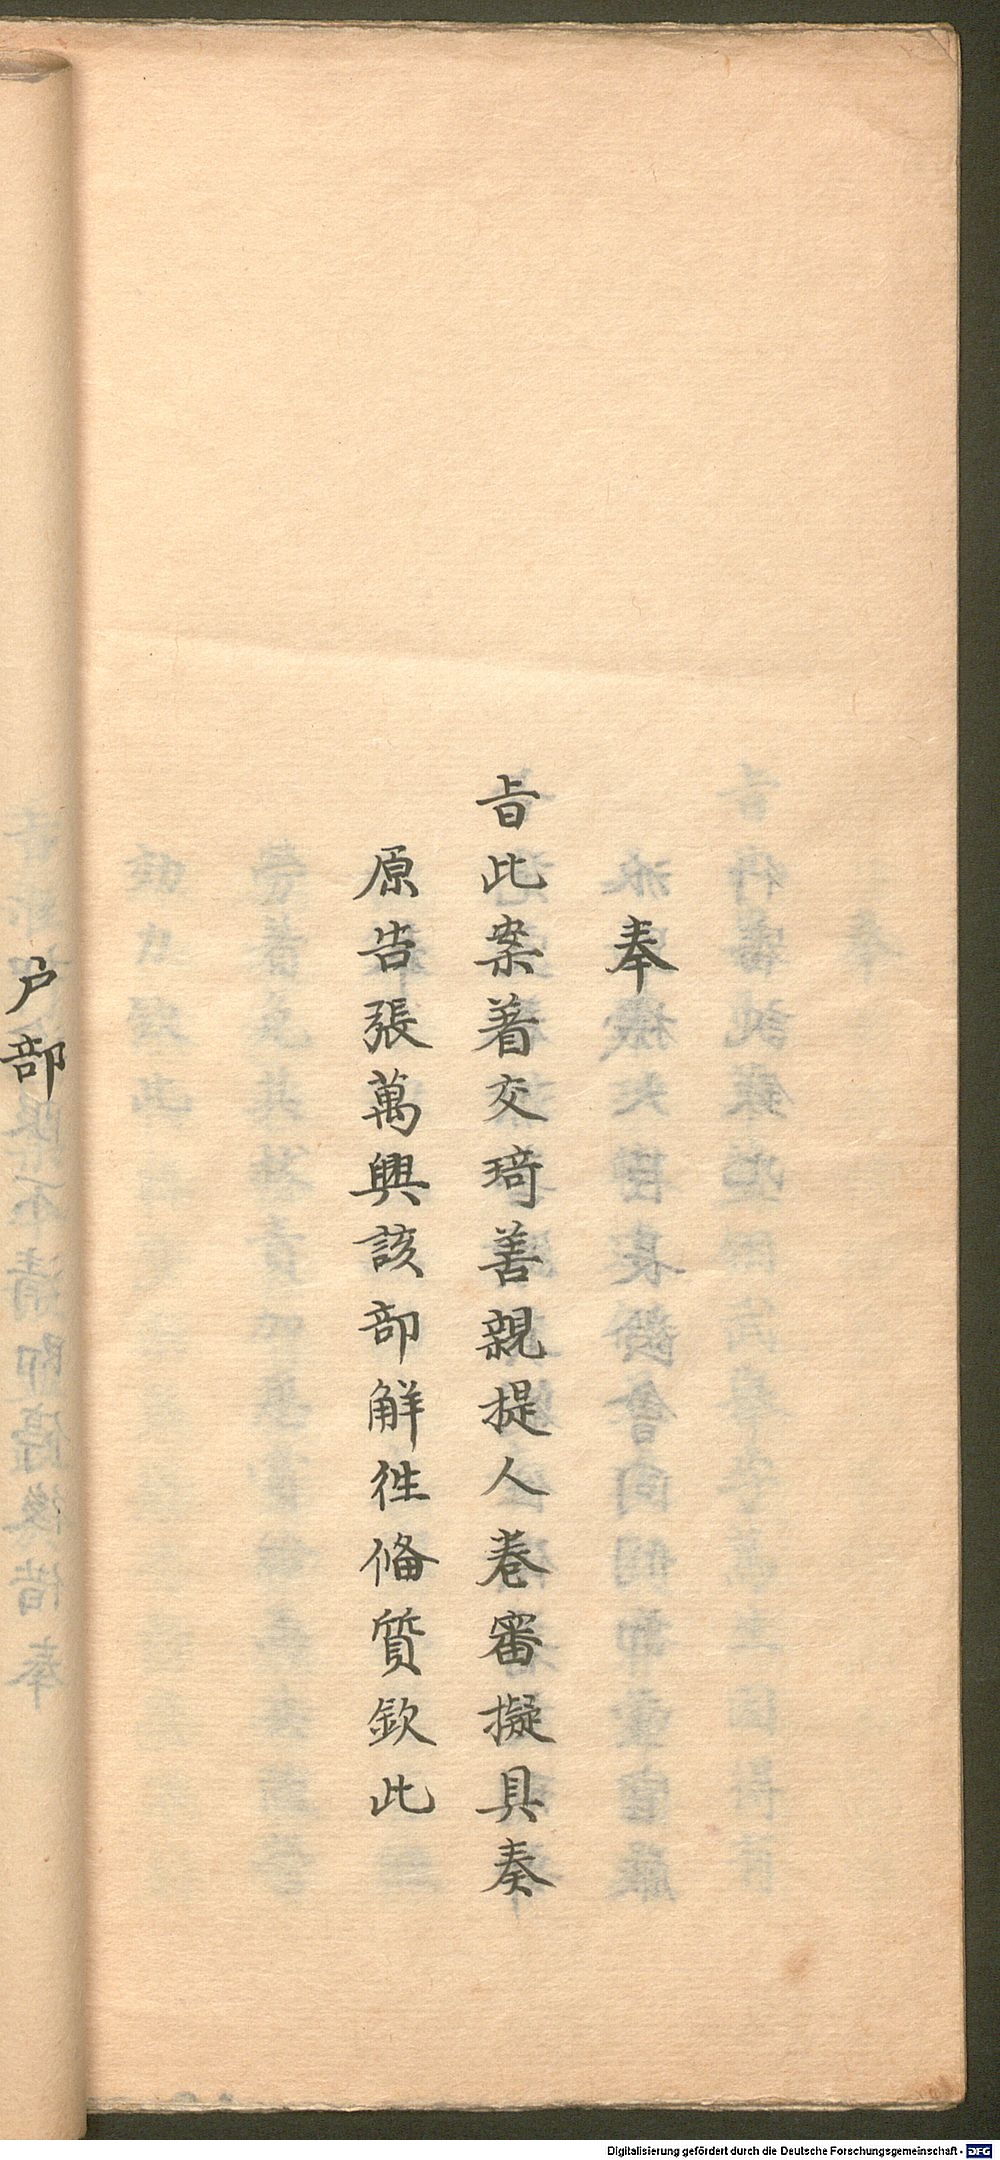 奉
旨此案著交琦善親提人卷審擬具奏
原告張萬興該部解徃俻質欽此
户部
Digitalisierung gefördert durch die Deutsche Forschungsgemeinschaft - DFG